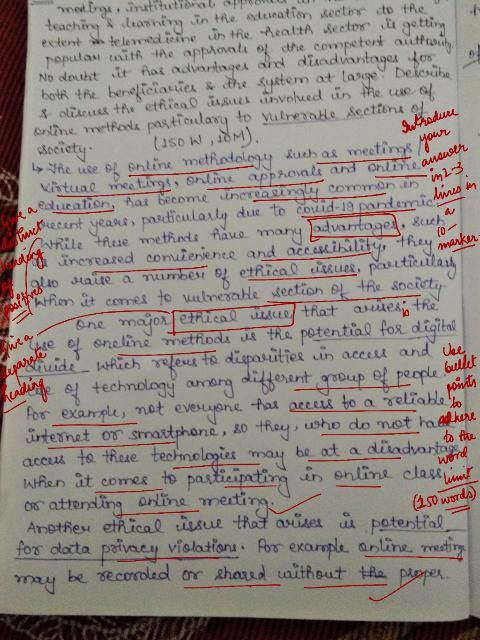 meetings, institutional approvals
teaching & learning in the education sector to the
extent telemedicine in the health sector is getting
popular with the approvals of the competent authority.
No doubt it has advantages and disadvantages for
both the beneficiaries & the system at large. Describe
& discuss the ethical issues involved in the use of
online methods particularly to vulnerable sections of
society. (150 W, 10M).
↳ The use of online methodology such as meetings
virtual meetings, online approvals and online
education, has become increasingly common in
recent years, particularly due to covid-19 pandemic
While these methods have many advantages, such
as increased convienience and accessibility, they
also raise a number of ethical issues, particularly
when it comes to vulnerable section of the society.
One major ethical issue that arises is the
use of oneline methods is the potential for digital
divide which refers to disparities in access and
use of technology among different group of people
For example, not everyone has access to a reliable
internet or smartphone, so they, who do not have
access to these technologies may be at a disadvantage
when it comes to participating in online class
or attending online meeting.
Another ethical issue that arises is potential
for data privacy violations. For example online meeting
may be recorded or shared without the proper
Introduce
your
answer
in 2-3
lines in
a
10-
marker
Give a
distinct
heading
of
positives
Give a
separate
heading
Use
bullet
points
to
adhere
to the
word
limit
(150 words)